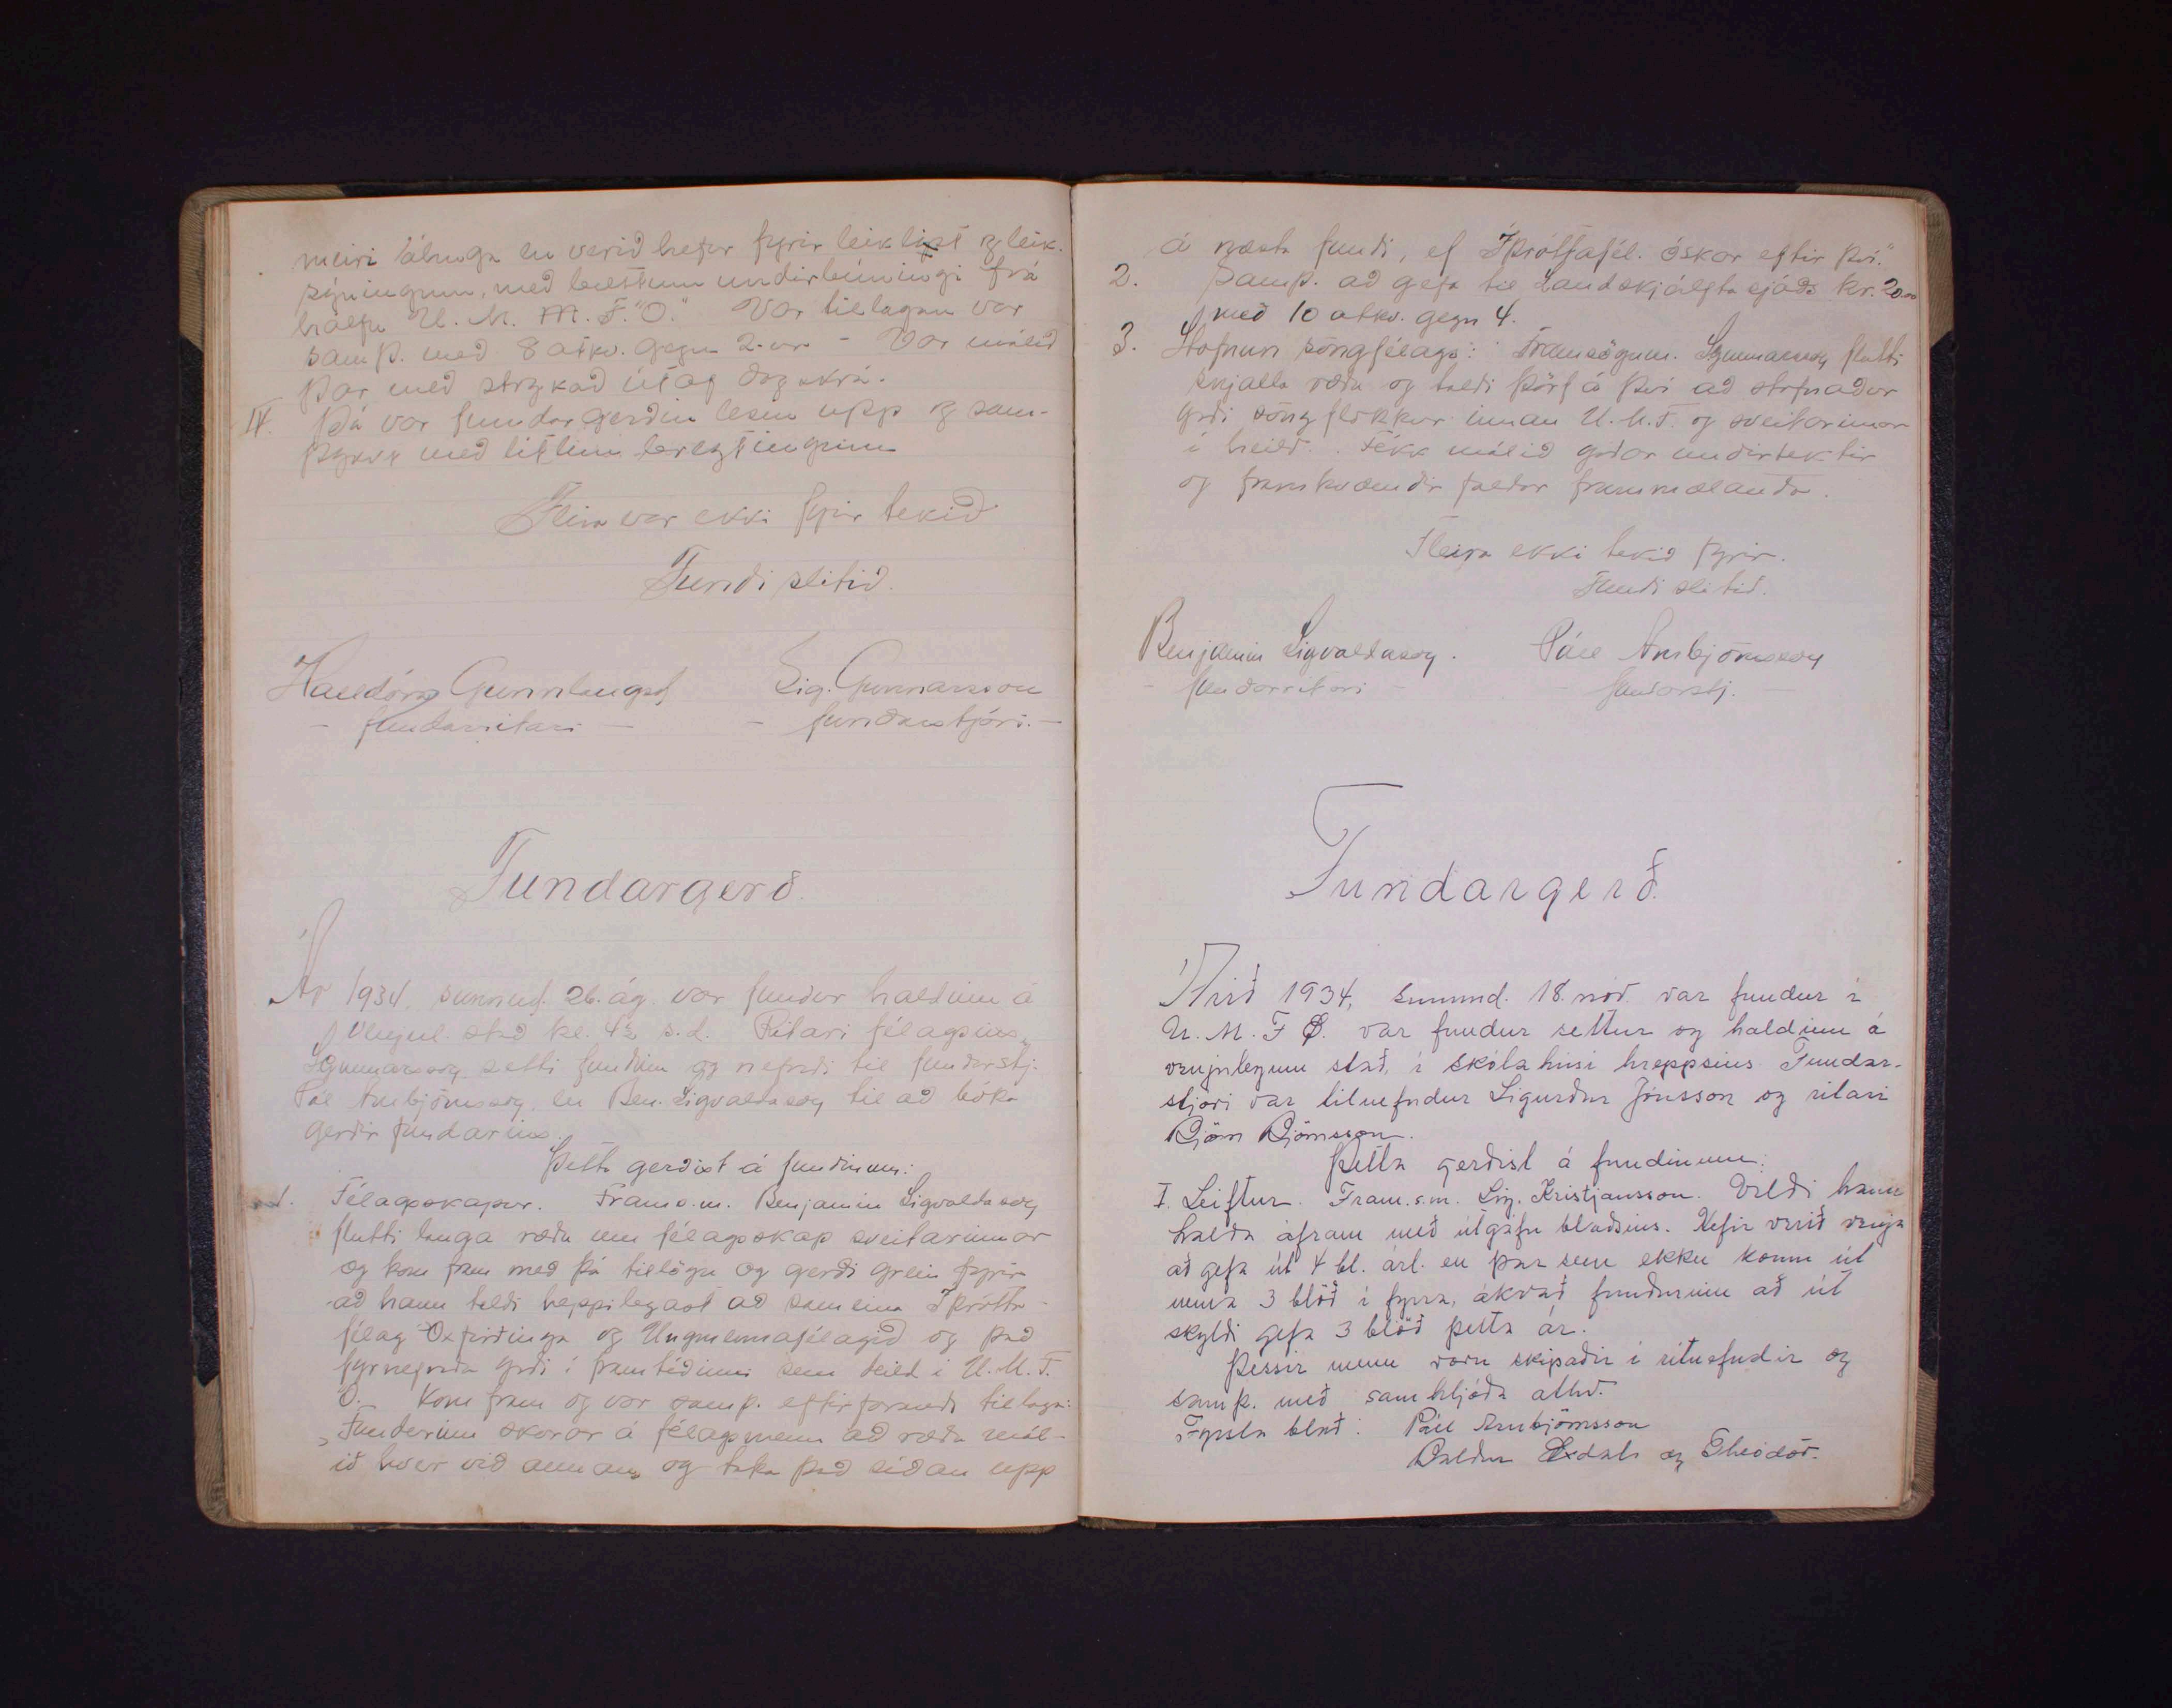 meiri áhuga en verið hefur fyrir leiklist og leik-
sýningum, með bættum undirbúningi frá
hálfu U. M. M. F. "Ö." Var tillagan var
samþ. með 8 atkv. gegn 2-ur - Var málið
þar með strykað út af dagskrá.
IV. Þá var fundargerðin lesin upp og sam-
þykt með litlum breytingum
Fleira var ekki fyrir tekið
Fundi slitið.
Halldóra Gunnlaugsd Sig. Gunnarsson
- fundarritari - - fundarstjóri. -
Fundargerð.
Ár 1934. sunnud. 26. ág. var fundur haldinn á
venjul. stað kl. 4½ s.d. Ritari félagsins
SGunnarsson setti fundinn og nefndi til fundarstj.
Pál Arnbjörnsson, en Ben. Sigvaldason til að bóka
gerðir fundarins.
Þetta gerðist á fundinum:
1. Félagsskapur. Frams.m. Benjamín Sigvaldason
flutti langa ræðu um félagsskap sveitarinnar
og kom fram með þá tillögu og gerði grein fyrir
að hann teldi heppilegast að sameina Íþrótta-
félag Öxfirðinga og Ungmennafélagið og það
fyrnefnda yrði í framtíðinni sem deild í U. M. F.
Ö. Kom fram og var samþ. eftirfarandi tillaga:
„Fundurinn skorar á félagsmenn að ræða mál-
ið hver við annan og taka það síðan upp
á næsta fundi, ef Íþróttafél. óskar eftir því."
2. Samþ. að gefa til Landskjálftasjóðs kr. 20.00
með 10 atkv. gegn 4.
3. Stofnun söngfélags: Framsögum. SGunnarsson flutti
snjalla ræðu og taldi þörf á því að stofnaður
yrði söngflokkur innan U.M.F. og sveitarinnar
í heild. Fékk málið góðar undirtektir
og framkvæmdir faldar frummælanda.
Fleira ekki tekið fyrir.
Fundi slitið.
Benjamín Sigvaldason. Páll Arnbjörnsson
- fundarritari - - fundarstj. -
Fundargerð.
Árið 1934, sunnud. 18. nóv. var fundur í
U. M. F Ö. var fundur settur og haldinn á
venjulegum stað, í skólahúsi hreppsins. Fundar-
stjóri var tilnefndur Sigurður Jónsson og ritari
Björn Björnsson.
Þetta gerðist á fundinum:
I. Leiftur. Fram.s.m. Sig. Kristjánsson. Vildi hann
halda áfram með útgáfu blaðsins. Hefir verið venja
að gefa út 4 bl. árl. en þar sem ekki komu út
nema 3 blöð í fyrra, ákvað fundurinn að út
skyldi gefa 3 blöð þetta ár.
Þessir menn voru skipaðir í ritnefndir og
samþ. með samhljóða atkv.
Fyrsta blað: Páll Arnbjörnsson
Baldur Öxdals og Theódór.